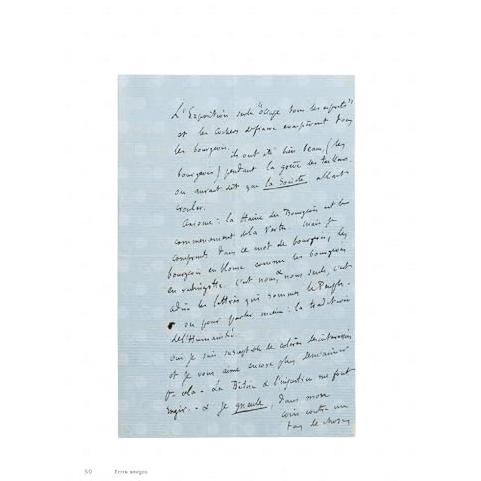 L'Exposition, seule "occupe tous les esprits"
et les cochers de fiacre exaspèrent tous
les bourgeois. Ils ont été bien beaux, (les
bourgeois) pendant la grève des tailleurs.
on aurait dit que la Société allait
crouler.
Axiome : la Haine du Bourgeois est le
commencement de la Vertu. Moi je
comprends dans ce mot de bourgeois, les
bourgeois en blouse comme les bourgeois
en redingote. C'est nous, & nous seuls, c'est
à dire les lettrés qui sommes le Peuple -
ou pour parler mieux : la tradition
de l'Humanité.
Oui je suis susceptible de colères désintéressées
et je vous aime encore plus de m'aimer
pr cela. La Bêtise & l'injustice me font
rugir. - & je gueule, dans mon
coin contre un
tas de choses
50 Entre amigos